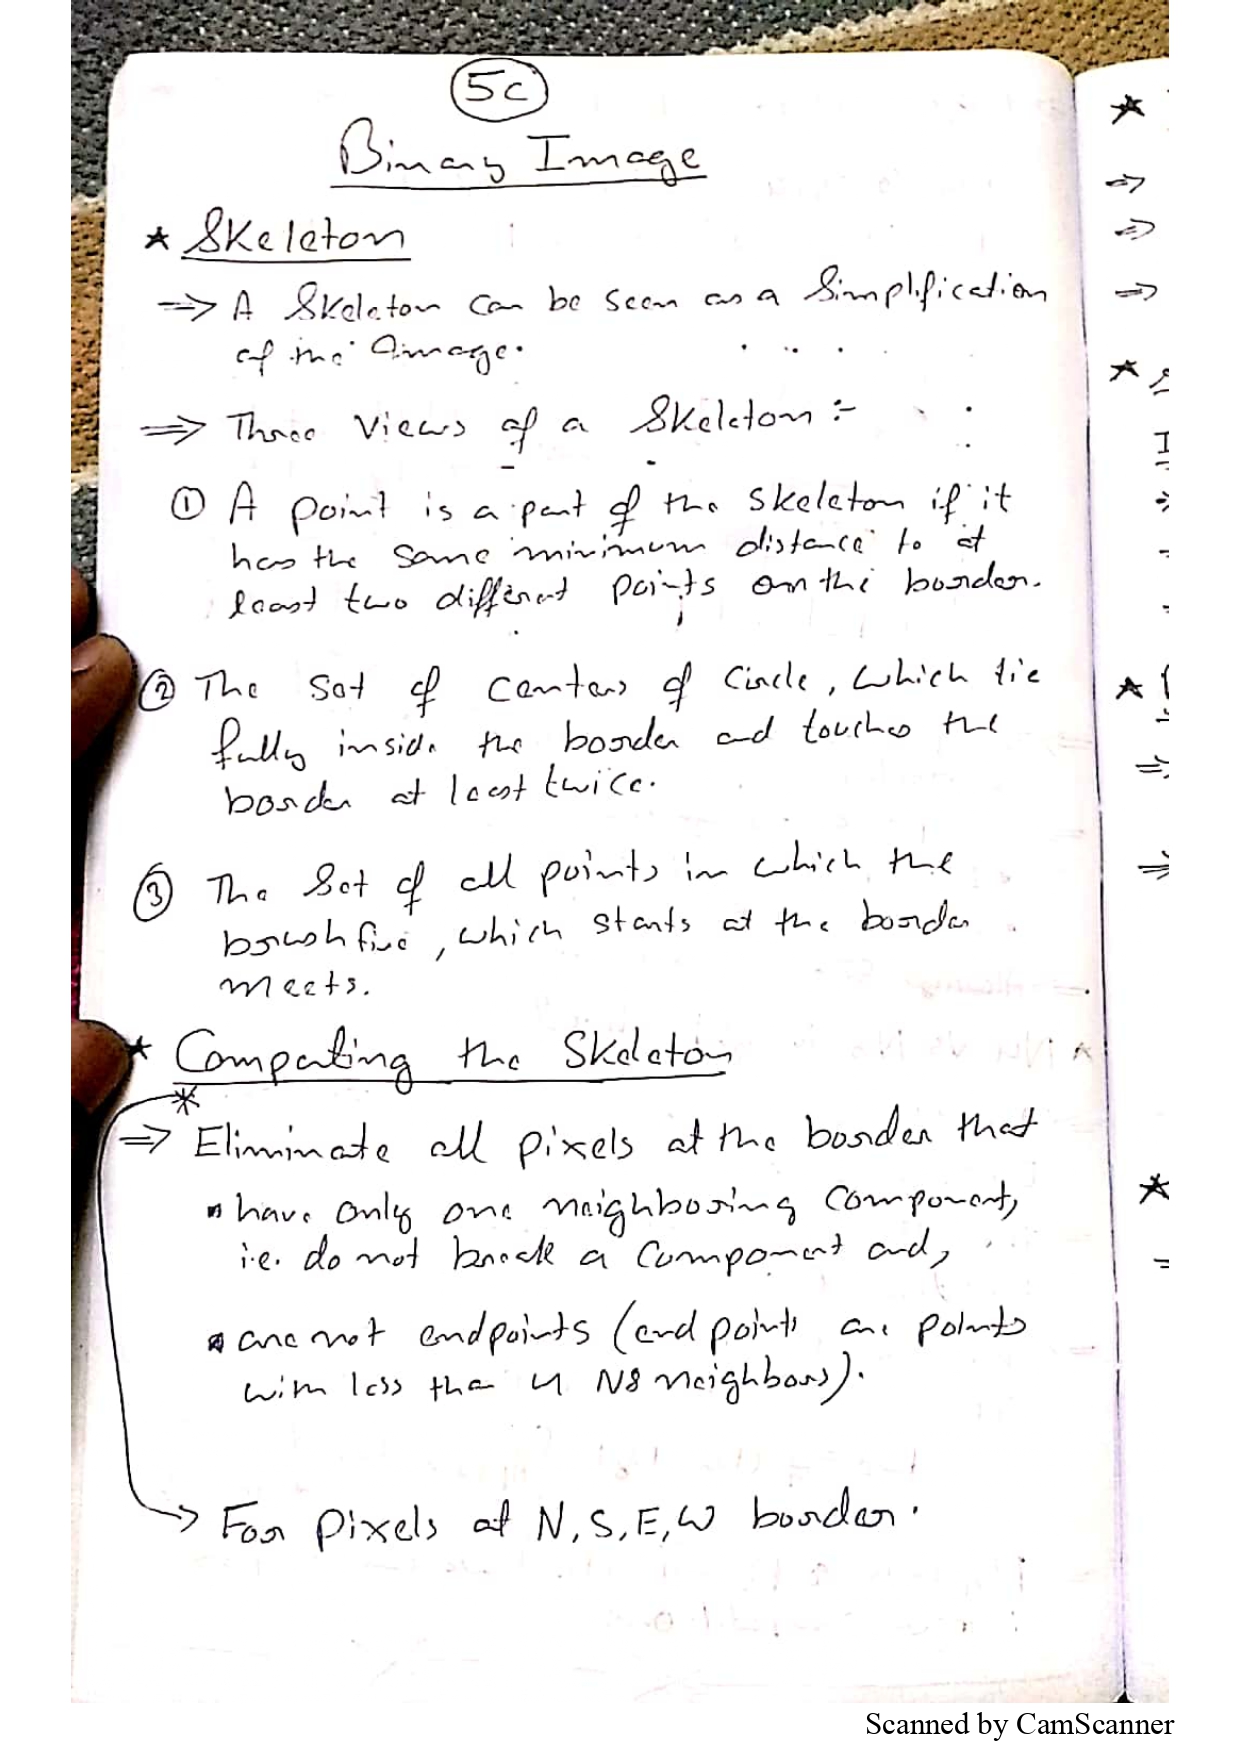 5c
Binary Image
★ Skeleton
⇒ A Skeleton can be seen as a Simplification
of the Image.
⇒ Three Views of a Skeleton :-
① A point is a part of the skeleton if it
has the same minimum distance to at
least two different points on the border.
② The set of centers of circle, which lie
fully inside the border and touches the
border at least twice.
③ The Set of all points in which the
brushfire, which starts at the border
meets.
★ Computing the Skeleton
*
⇒ Eliminate all pixels at the border that
▪ have only one neighboring component,
i.e. do not break a component and,
▪ are not endpoints (end points are points
with less than 4 N8 neighbors).
→ For pixels at N, S, E, W border.
Scanned by CamScanner